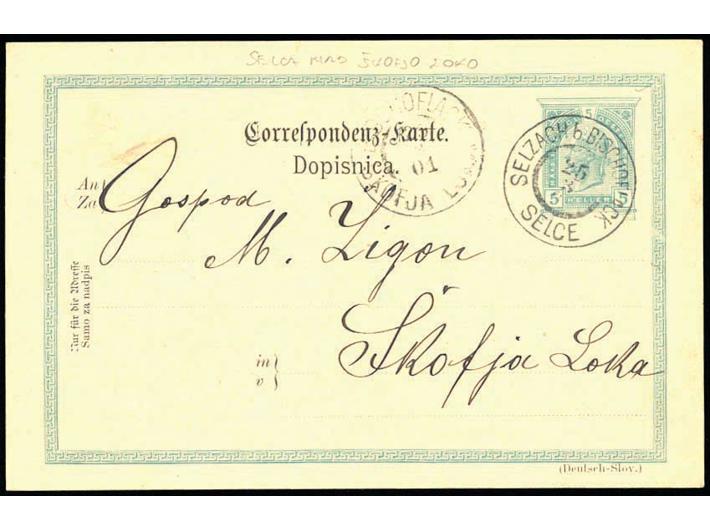 SELCA NAD ŠKOFJO LOKO
Correspondenz-Karte.
Dopisnica.
BISCHOFLACK
01
ŠKOFJA LOKA
5
SELZACH b. BISCHOFLACK
25
3
SELCE
5 HELLER 5
An
Za
Gospod
M. Zigon
Nur für die Adresse
Samo za nadpis
in
v
Škofja Loka
(Deutsch-Slov.)